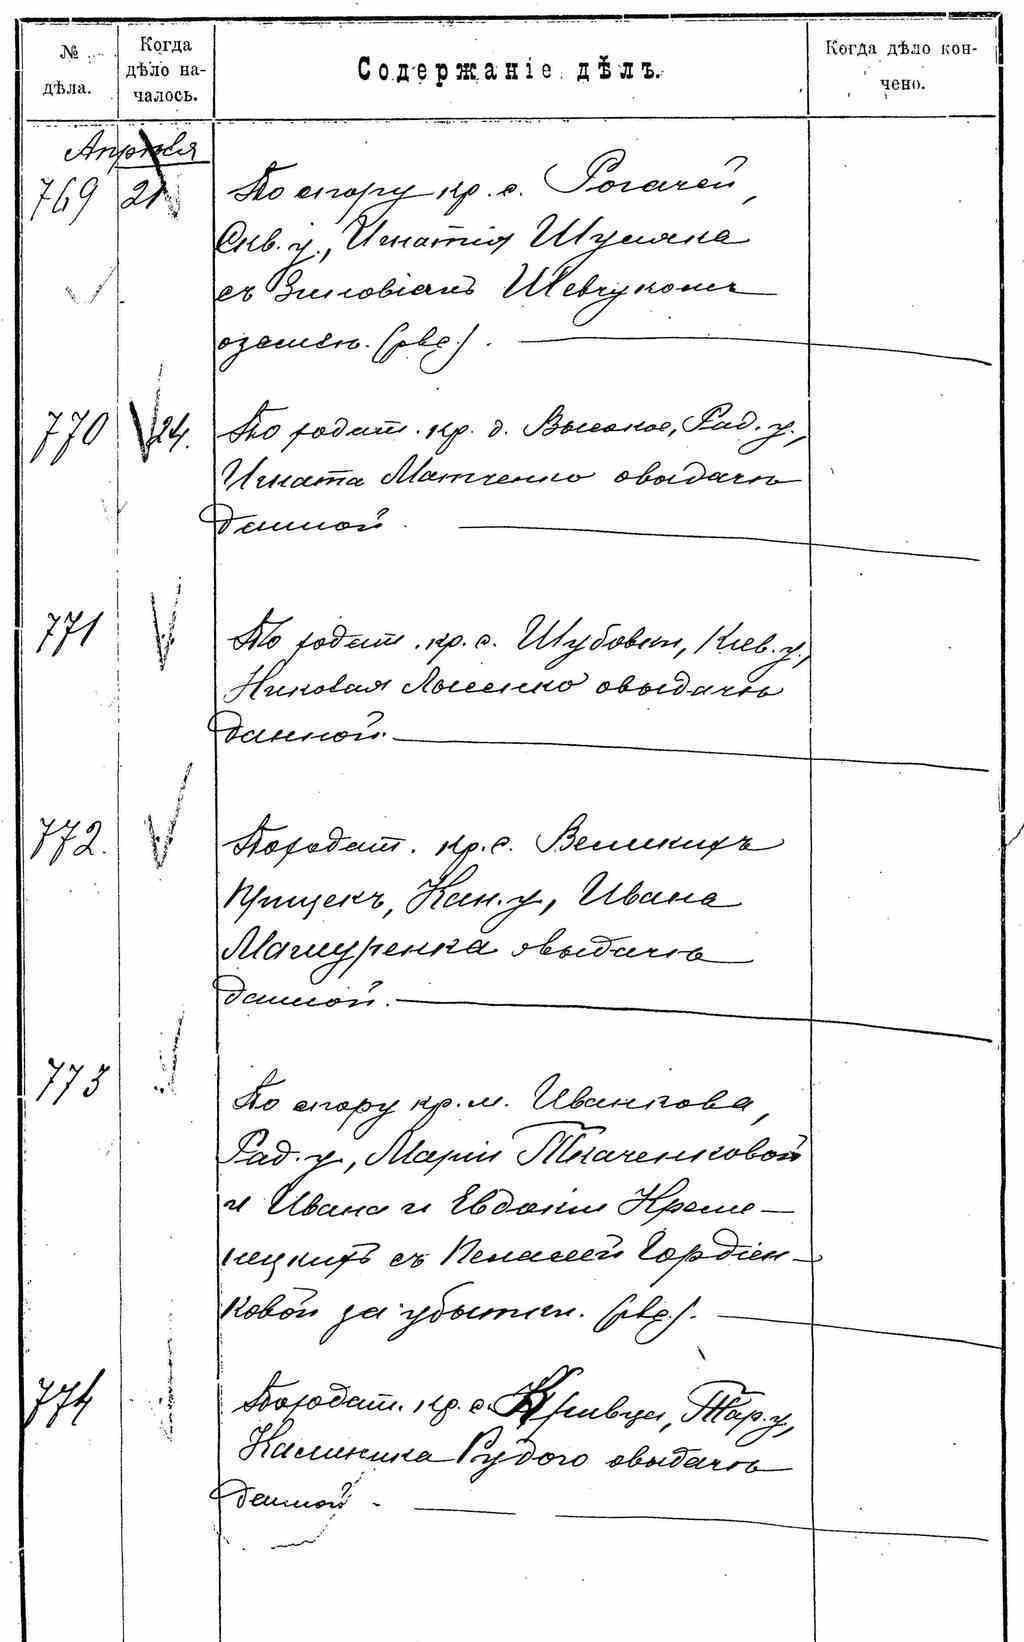 № дѣла.
Когда дѣло началось.
Содержаніе дѣлъ.
Когда дѣло кончено.
Апрѣля
769 21 По спору кр. с. Рогачей,
Скв. у., Игнатія Шуляка
съ Зиновіемъ Шевчукомъ
о землѣ.
770 24. По ходат. кр. д. Высокое, Рад. у.,
Игната Матченко о выдачѣ
данной.
771 По ходат. кр. с. Шубовки, Кіев. у.,
Николая Лысенко о выдачѣ
данной.
772. По ходат. кр. с. Великихъ
Прицекъ, Кан. у., Ивана
Мачуренка о выдачѣ
данной.
773 По спору кр. м. Иванкова,
Рад. у., Маріи Ткаченковой
и Ивана и Евдокіи Креме-
нецкихъ съ Пелагеей Гордіен-
ковой за убытки.
774 По ходат. кр. с. Кривца, Тар. у.,
Калиника Рудого о выдачѣ
данной.